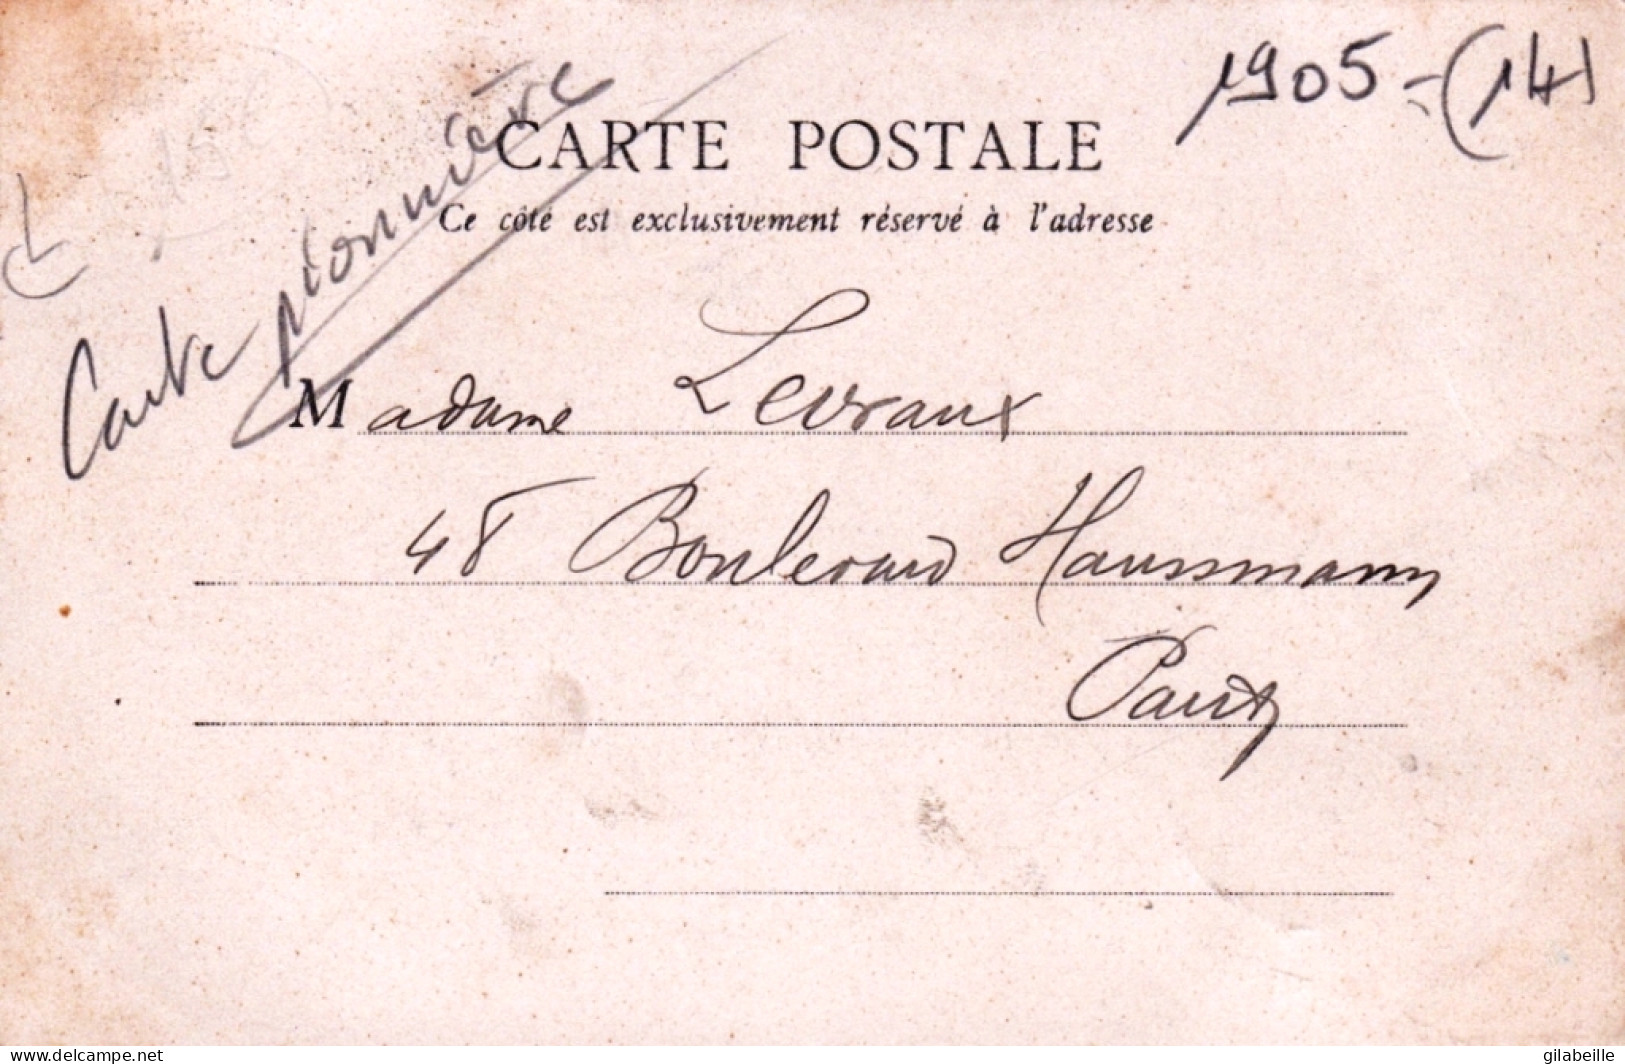 1905 - (14)
Carte pionnière
CARTE POSTALE
Ce côté est exclusivement réservé à l'adresse
Madame Levraux
48 Boulevard Haussmann
Paris
www.delcampe.net
gilabeille